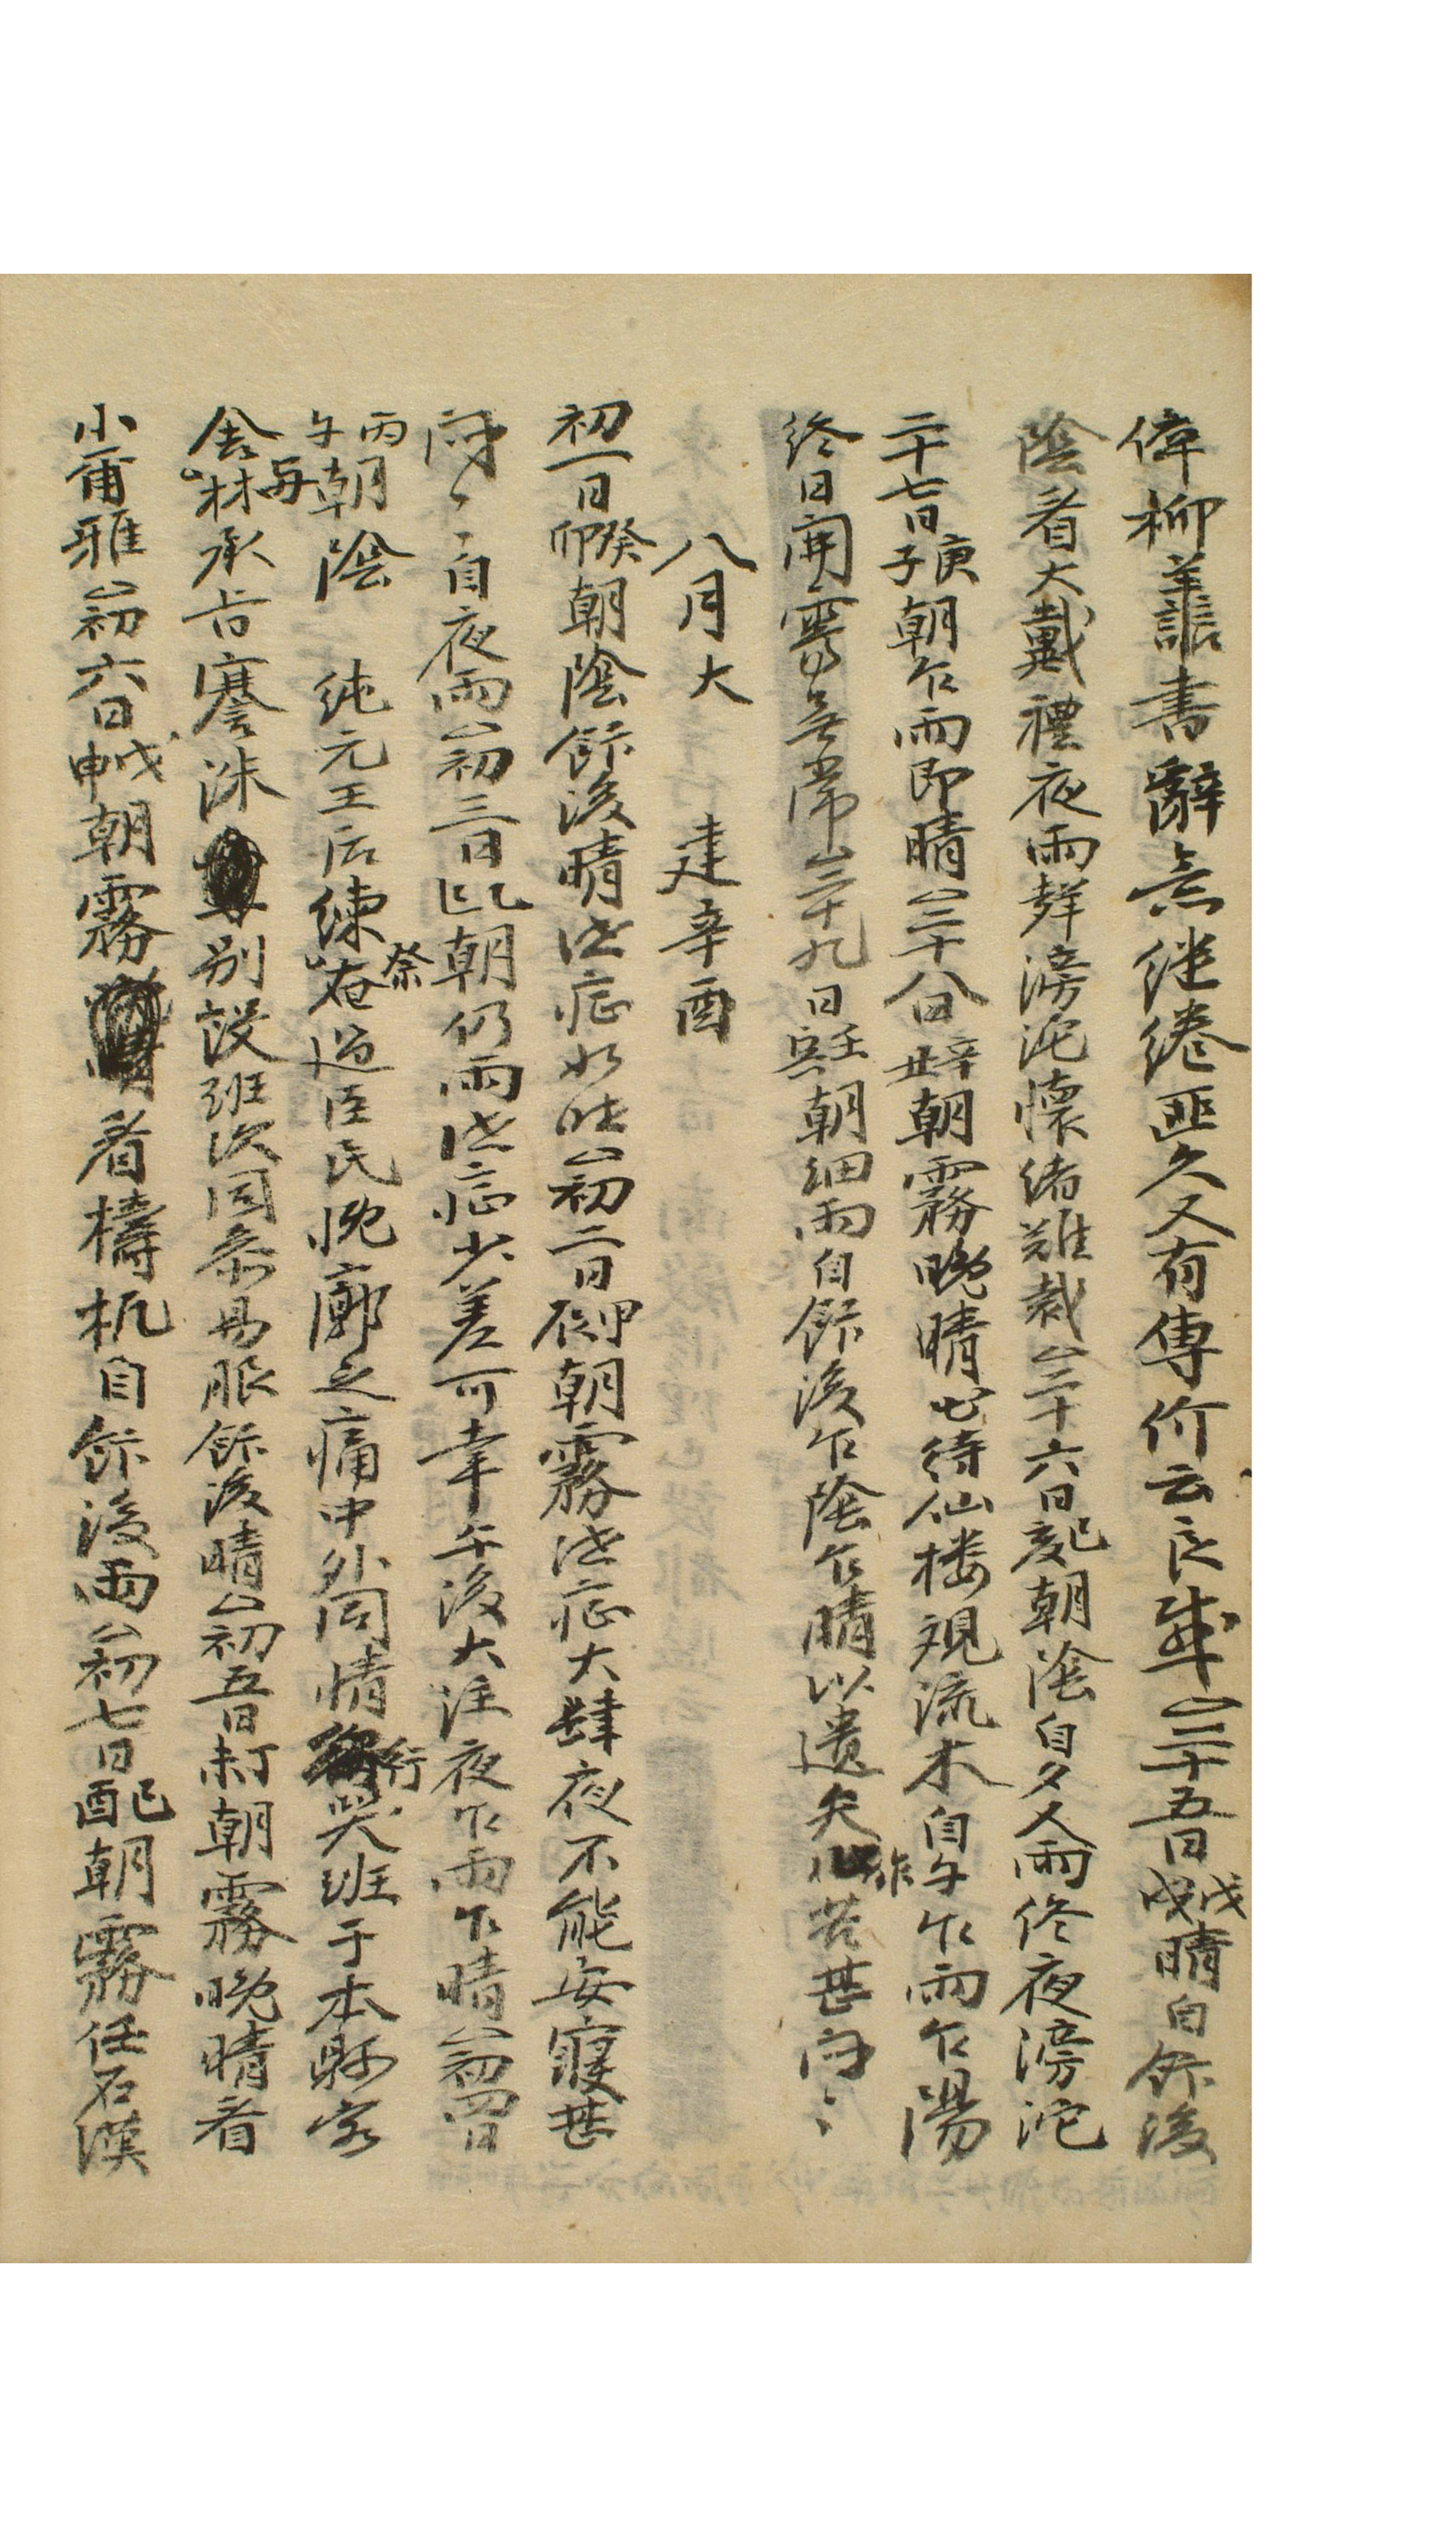 偉柳善謊書辭意繾綣匪久又有傳价云良幸二十五日戊戌晴自飯後
陰看大戴禮夜雨聲滂沱懷緖難裁二十六日己亥朝陰自夕又雨終夜滂沱
二十七日庚子朝乍雨卽晴二十八日辛丑朝霧晩晴出待仙楼観流水自午乍雨乍陽
終日開霽無常二十九日壬寅朝細雨自飯後乍陰乍晴以遺矢作苦甚悶〻
八月大 建辛酉
初一日癸卯朝陰飯後晴泄症如昨初二日甲辰朝霧泄症大肆夜不能安寢甚
悶〻自夜雨初三日乙巳朝仍雨泄症少差可幸午後大注夜乍雨乍晴初四日
丙午朝陰 純元王后練祭奄過臣民慨廓之痛中外同情行哭班于本縣客
舍与林承旨蹇洙別設班次同參易服飯後晴初五日丁未朝霧晩晴看
小爾雅初六日戊申朝霧看檮杌自飯後雨初七日己酉朝霧任石漢